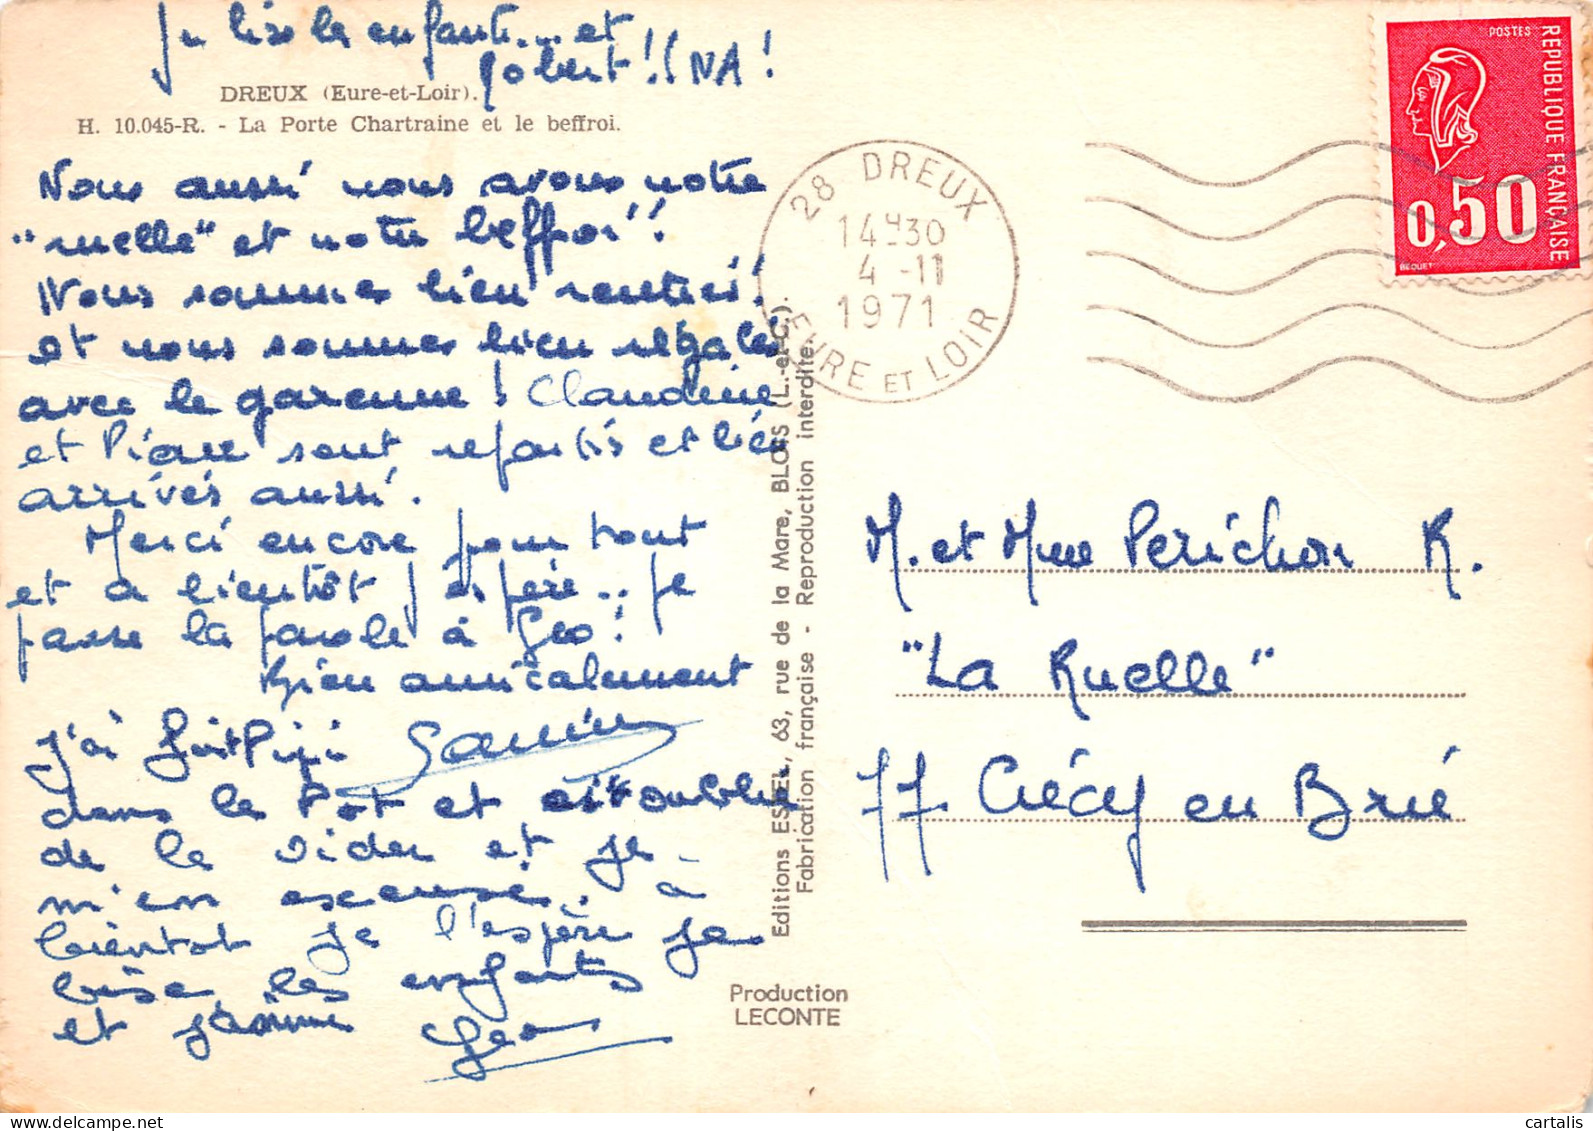 Je bise les enfants... et
Robert!! NA!
DREUX (Eure-et-Loir).
H. 10.045-R. - La Porte Chartraine et le beffroi.
Nous aussi nous avons notre
"ruelle" et notre beffroi!!
Nous sommes bien rentrés!
et nous sommes bien régalés
avec le garenne! Claudine
et Pierre sont repartis et bien
arrivés aussi.
Merci encore pour tout
et a bientôt j'espère.. je
passe la parole à Géo!
Bien amicalement
J'ai fait pipi
dans le Pot et oublier
de le vider et je
m'en excuse. à
bientot je l'espère je
bise les enfants
et Janine
Géo
28 DREUX
14H30
4-11
1971
EURE ET LOIR
POSTES
REPUBLIQUE FRANÇAISE
0,50
BEQUET
Editions ESTEL, 63, rue de la Mare, BLOIS (L.-et-C.).
Fabrication française - Reproduction interdite.
Production
LECONTE
M. et Mme Perichon R.
"La Ruelle"
77. Crécy en Brie
cartalis